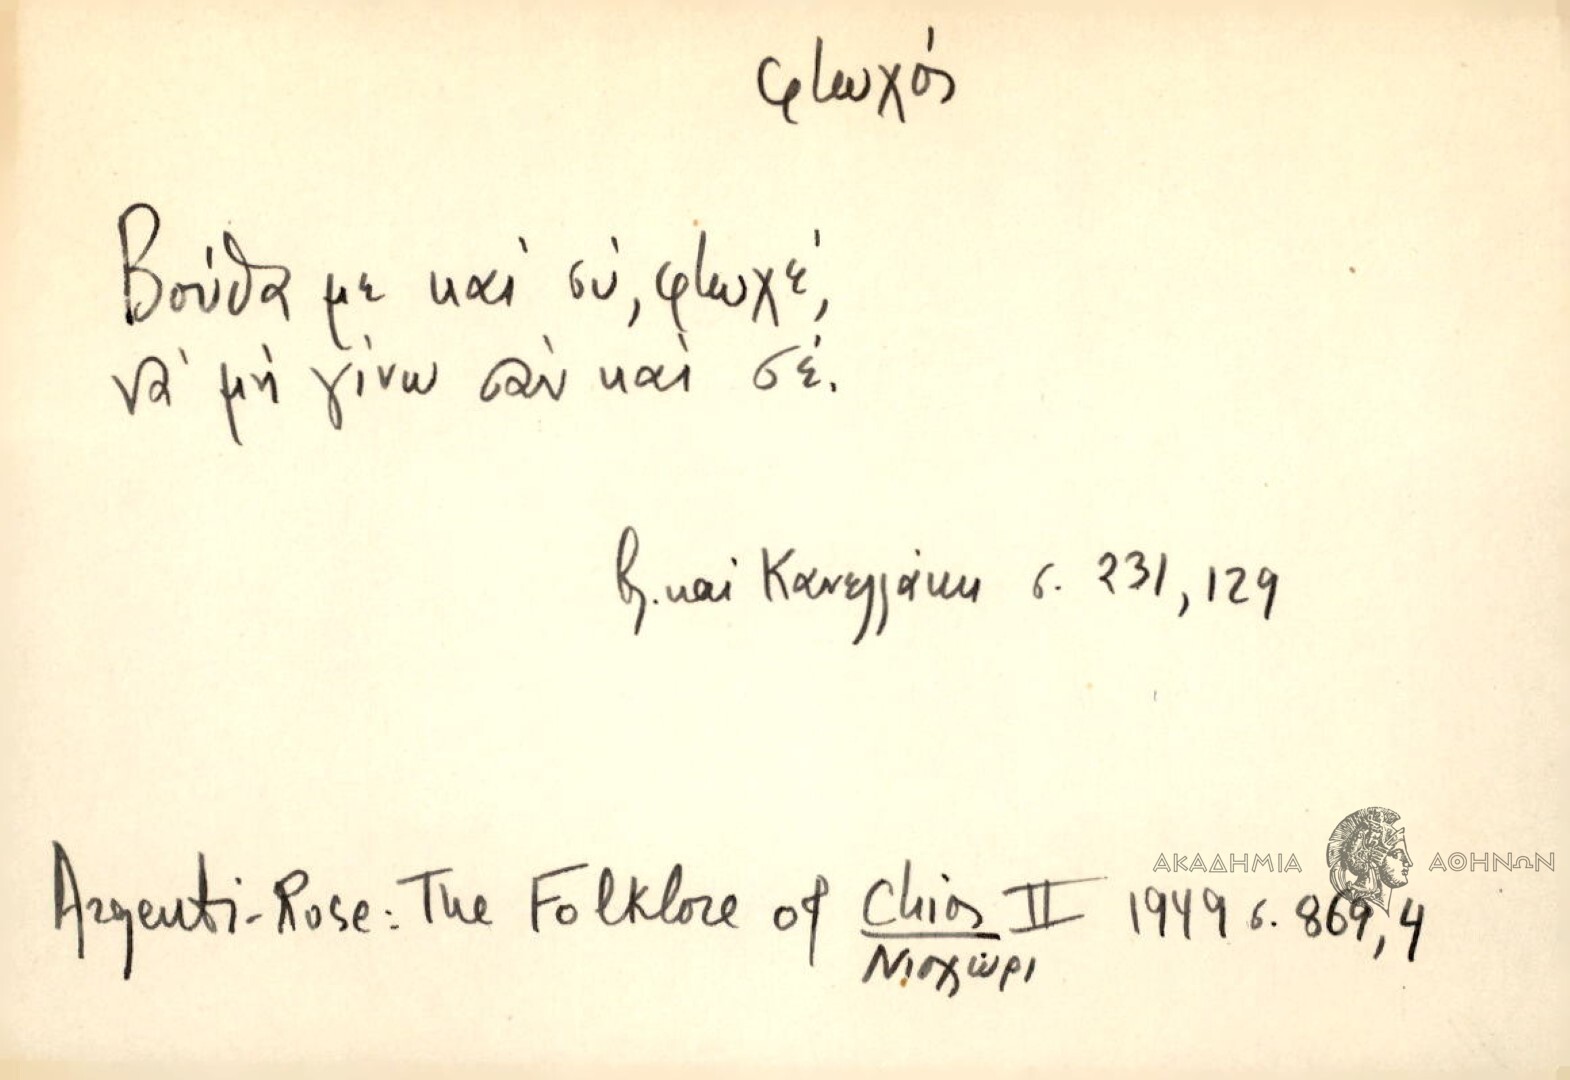 φτωχός
Βούθα με καὶ σύ, φτωχέ,
νὰ μὴ γίνω σὰν καὶ σέ.
βλ. καὶ Κανελλάκη σ. 231, 129
ΑΚΑΔΗΜΙΑ ΑΘΗΝΩΝ
Argenti-Rose: The Folklore of Chios II 1949 σ. 869, 4
Νιοχώρι